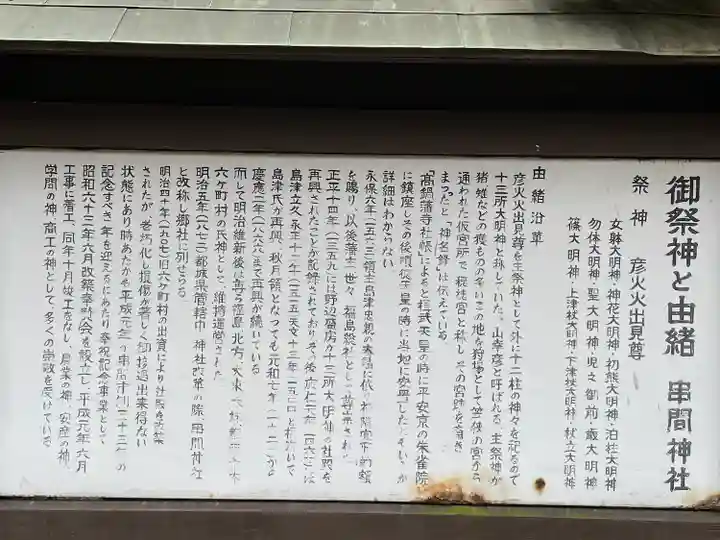 御祭神と由緒 串間神社
祭神 彦火火出見尊
女躰大明神・神花大明神・初熊大明神・泊柱大明神
勿体大明神・聖大明神・児之御前・嚴大明神
篠大明神・上津杖大明神・下津杖大明神・杖立大明神
由緒沿革
彦火火出見尊を主祭神として外に十二柱の神々を祀るので
十三所大明神と称していた。山幸彦と呼ばれる、主祭神が
猪雉などの獲ものの多いこの地を狩場として笠狭の宮から
通われた仮宮所で穂穂宮と称しその宮跡を斎き
まつったと、神名録は伝えている
高鍋蒲寺社帳によると桓武天皇の時に平安京の朱雀院
に鎮座しその後順徳天皇の時に当地に安置したともいうが
詳細はわからない
永保六年領主島津忠親の
を賜り、以後藩主世々、福島総社として
正平十四年(一三五九)には野辺盛房が十三所大明神の社殿を
再興されたことが記録されておりその後応仁二年(一四六八)には
島津立久、永正十二年(一五一五)天文十三年
島津氏が再興、秋月領となっても元和七年
慶應二年(一八六六)まで再興が続いている
而して明治維新後は専ら福島北方、大束
六ヶ町村の氏神として、維持運営された
明治五年(一八七三)都城県管轄中 神社改革の際、串間神社
と改称し郷社に列せらる
明治四十年(一九〇七)旧六ヶ町村の出資により社殿を改築
されたが、老朽化し損傷が著しく
状態にあり時あたかも平成元
記念すべき年を迎えるにあたり奉祝記念事業として
昭和六十三年六月改築奉賛会を設立し、平成元年六月
工事に着工、同年十月竣工をなし、農業の神、安産の神、
学問の神、商工の神として、多くの崇敬を受けている。